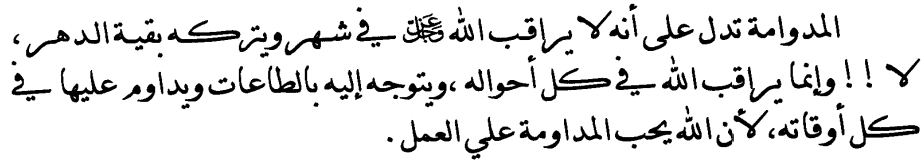 المدوامة تدل على أنه لا يراقب الله ﷿ في شهر ويتركه بقية الدهر،
لا !! وإنما يراقب الله في كل أحواله، ويتوجه إليه بالطاعات ويداوم عليها في
كل أوقاته، لأن الله يحب المداومة علي العمل.